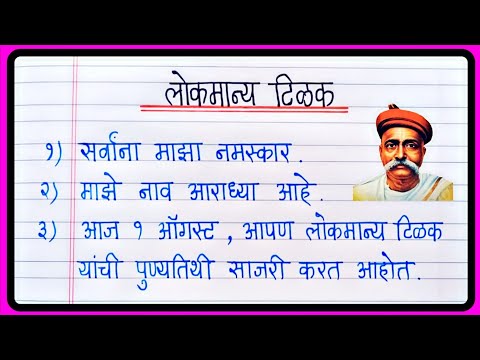 लोकमान्य टिळक
१) सर्वांना माझा नमस्कार.
२) माझे नाव आराध्या आहे.
३) आज १ ऑगस्ट, आपण लोकमान्य टिळक
यांची पुण्यतिथी साजरी करत आहोत.